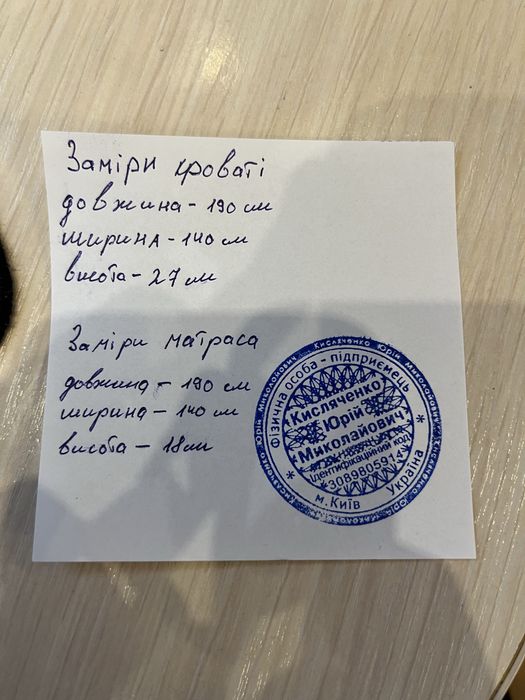 Заміри кроваті
довжина - 190 см
ширина - 140 см
висота - 27 см
Заміри матраса
довжина - 190 см
ширина - 140 см
висота - 18 см
Кисляченко Юрій Миколайович
Фізична особа - підприємець
Кисляченко
Юрій
Миколайович
Ідентифікаційний код
м. Київ
Україна